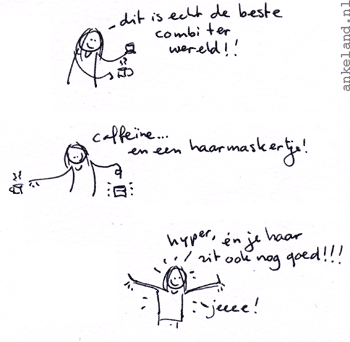 dit is echt de beste
combi ter
wereld!!
caffeïne...
en een haarmaskertje!
hyper, én je haar
zit ook nog goed!!!
jeeee!
ankeland.nl